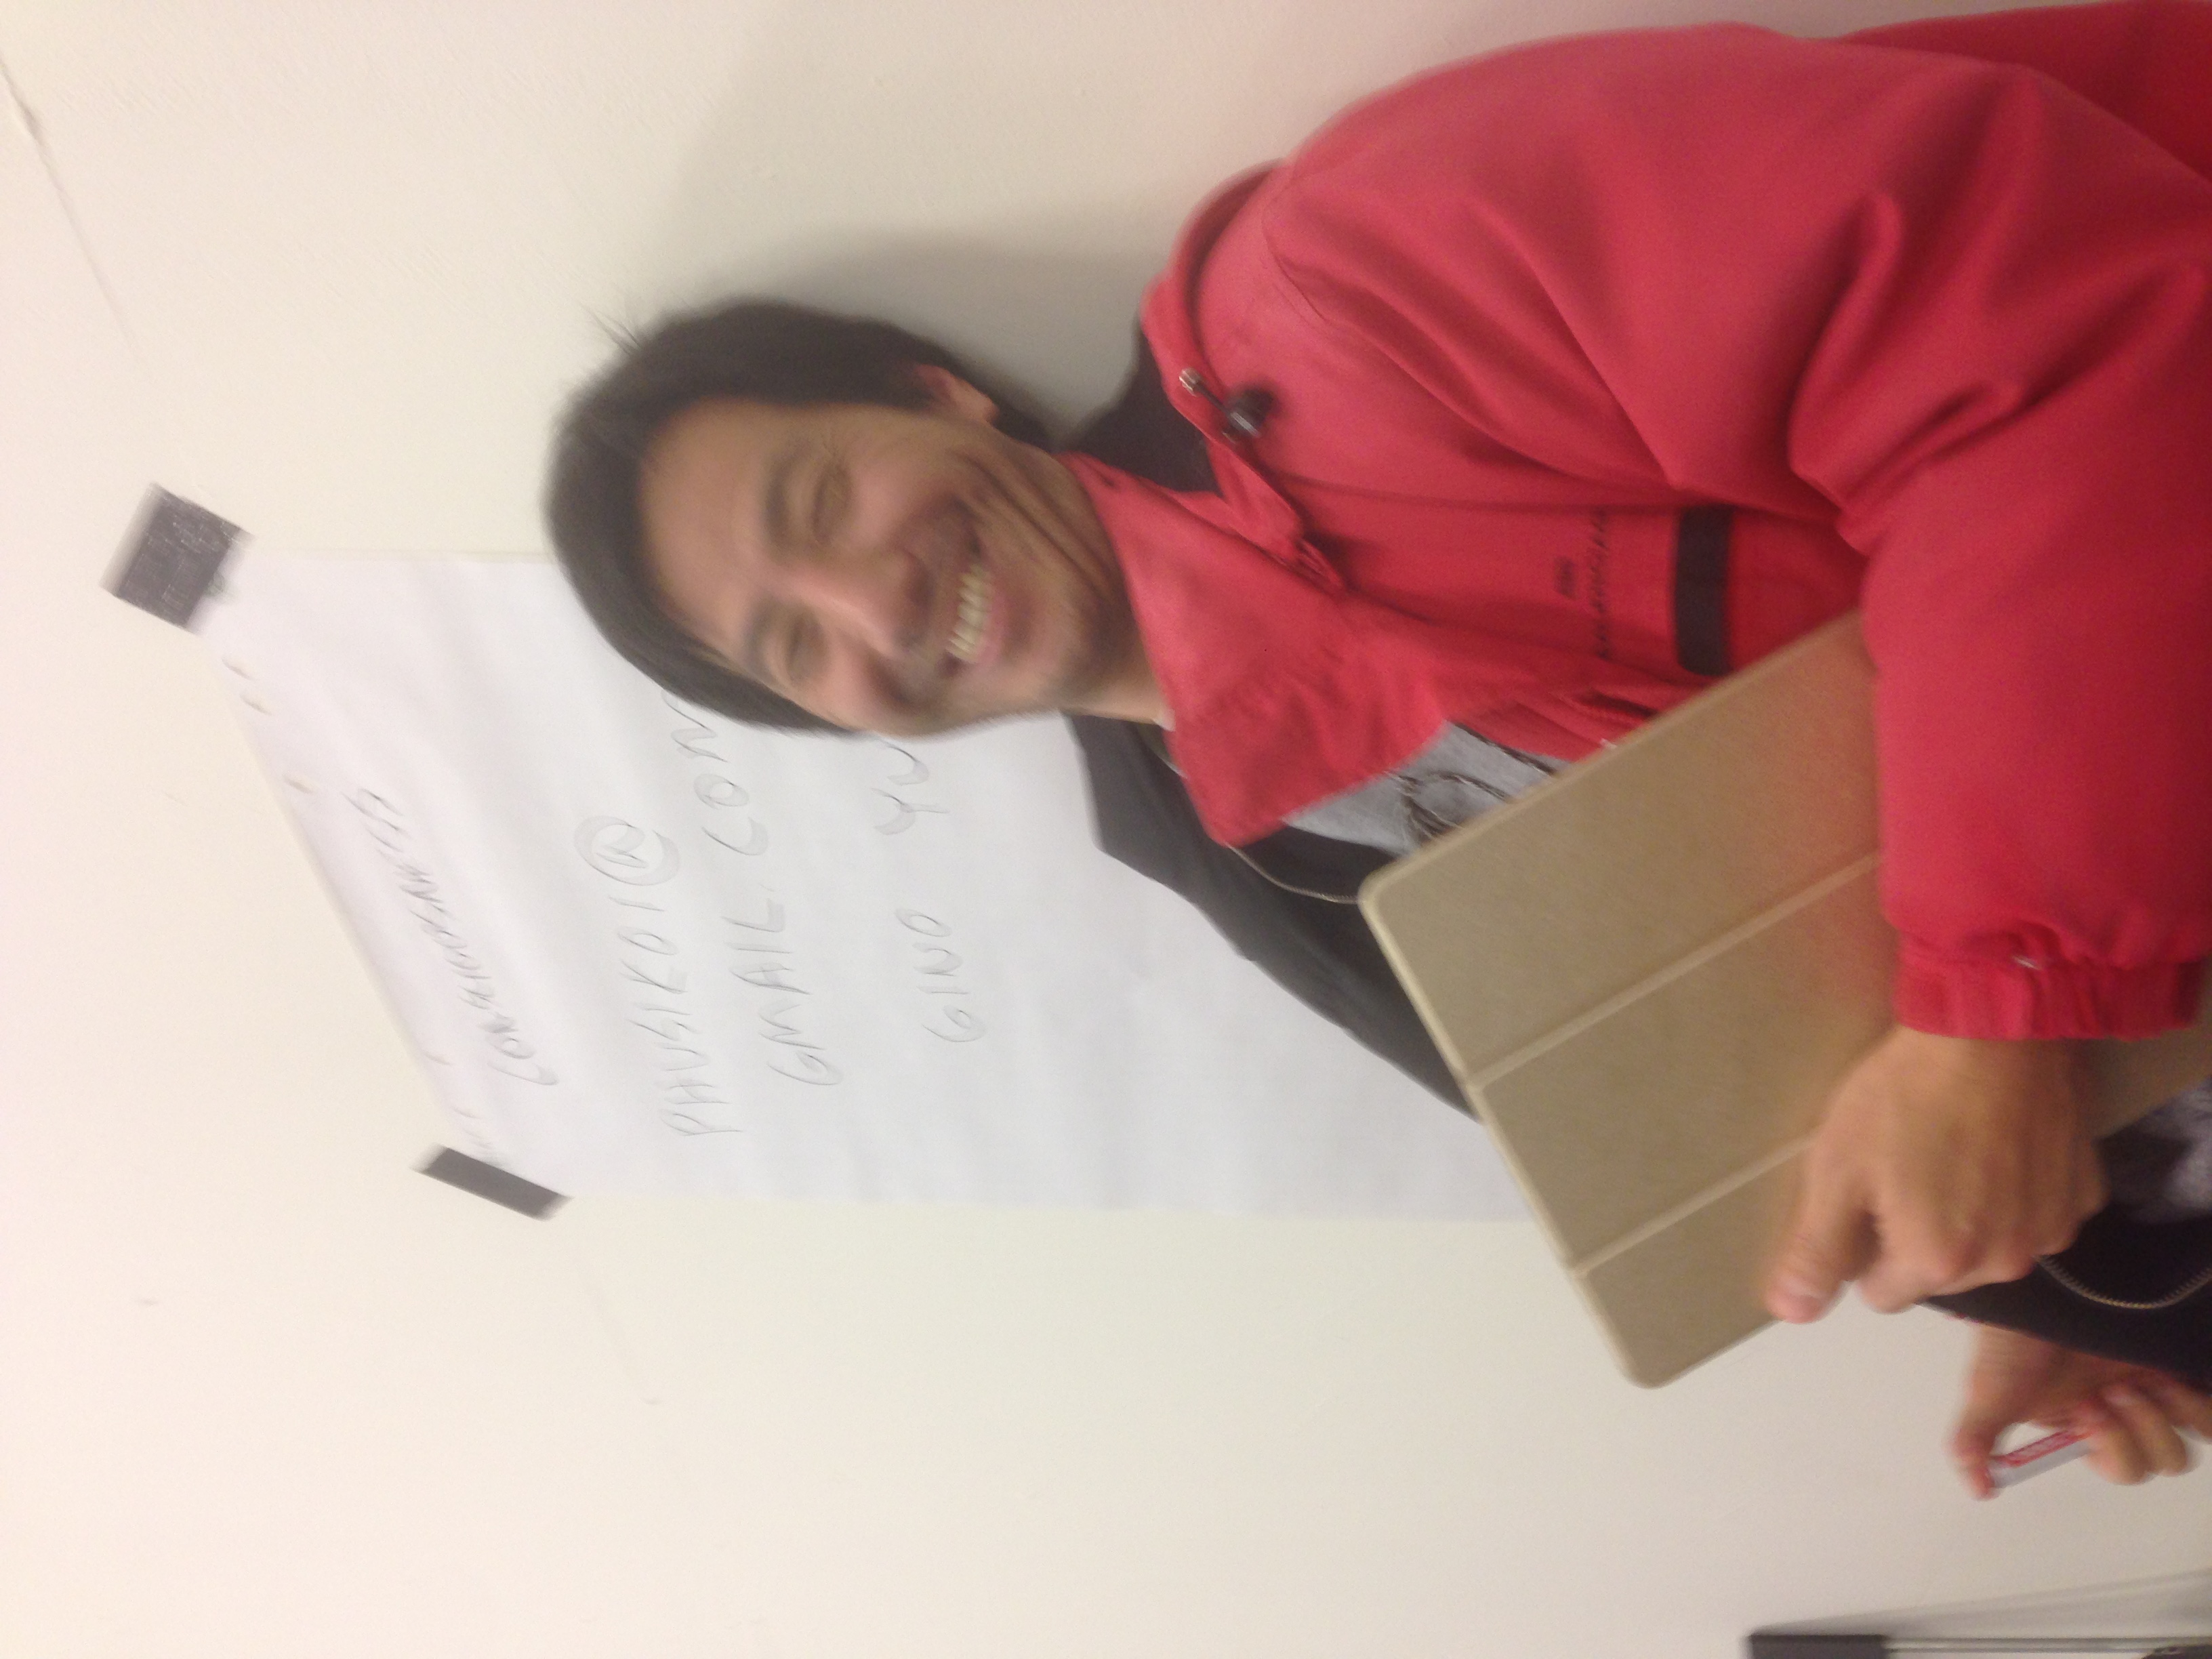 CONSCIOUSNESS
PHUSIKOI@
GMAIL.COM
GINO YU